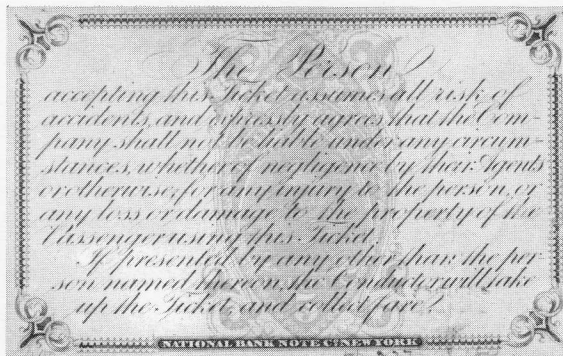 The Person
accepting this Ticket assumes all risk of
accidents, and expressly agrees that the Com-
pany shall not be liable under any circum-
stances, whether of negligence by their Agents
or otherwise, for any injury to the person, or
any loss or damage to the property of the
Passenger using this Ticket.
If presented by any other than the per-
son named thereon, the Conductor will take
up the Ticket, and collect fare.
NATIONAL BANK NOTE CO. NEW YORK